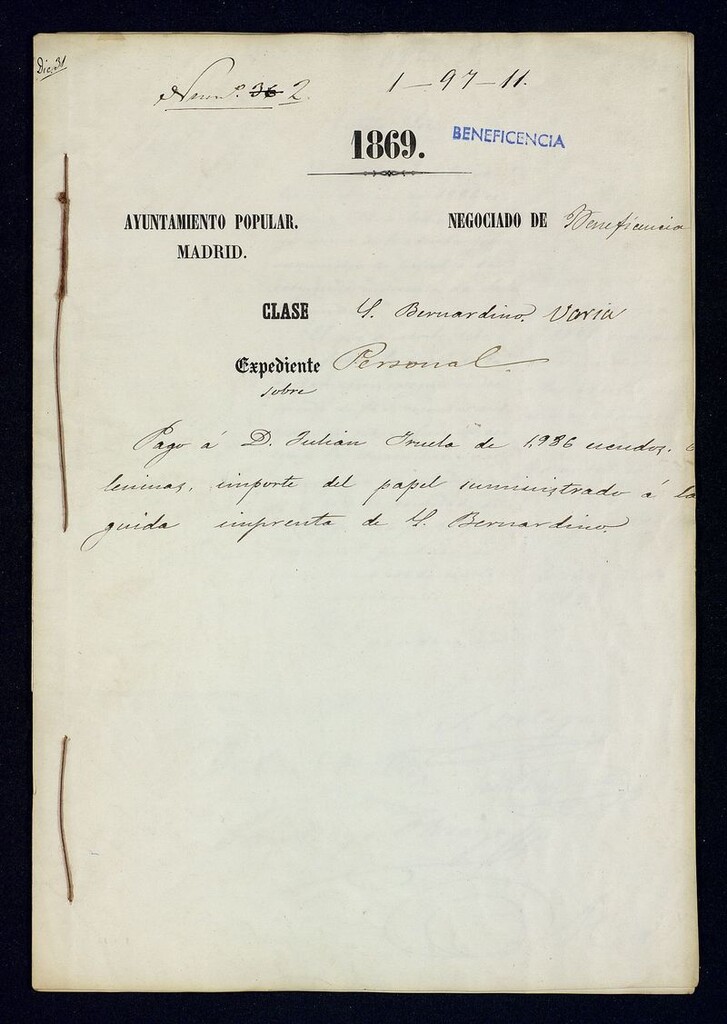 Dic. 31
Num.º 36 2. 1-97-11.
1869. BENEFICENCIA
AYUNTAMIENTO POPULAR. NEGOCIADO DE Beneficencia
MADRID.
CLASE S. Bernardino. Varia
Expediente Personal.
sobre
Pago á D. Julian de 1,986 escudos,
importe del papel suministrado á la
guida imprenta de S. Bernardino.